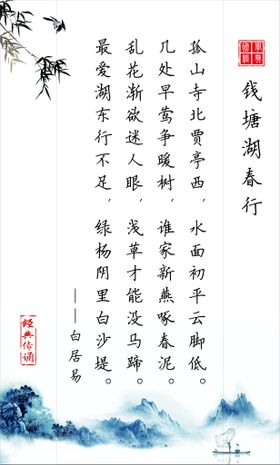 钱塘湖春行
孤山寺北贾亭西，水面初平云脚低。
几处早莺争暖树，谁家新燕啄春泥。
乱花渐欲迷人眼，浅草才能没马蹄。
最爱湖东行不足，绿杨阴里白沙堤。
——白居易
经典传诵